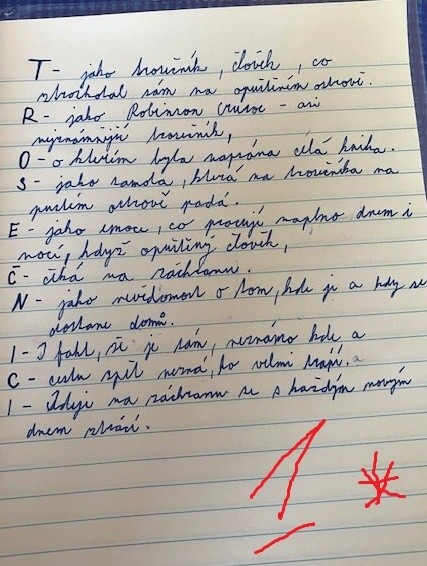 T - jako trosečník, člověk, co
ztroskotal sám na opuštěném ostrově.
R - jako Robinson Crusoe - asi
nejznámnější trosečník,
O - o kterém byla napsána celá kniha.
S - jako samota, která na trosečníka na
pustém ostrově padá.
E - jako emoce, co pracují naplno dnem i
nocí, když opuštěný člověk,
Č - čeká na záchranu.
N - jako nevědomost o tom, kde je a kdy se
dostane domů.
I - I fakt, že je sám, neznámo kde a
C - cestu zpět nezná, ho velmi trápí.
I - Ideji na záchranu se s každým novým
dnem ztrácí.
1 *